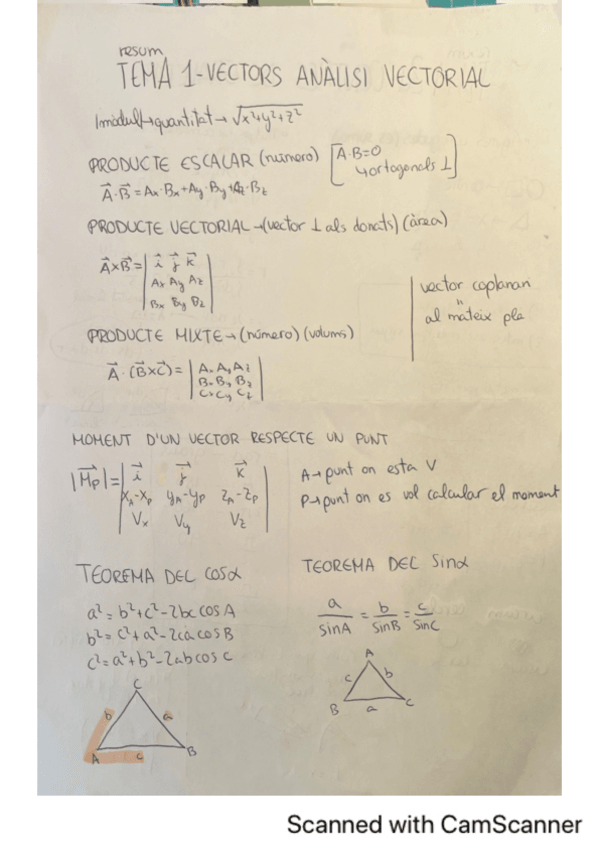 resum
TEMA 1-VECTORS ANÀLISI VECTORIAL
|mòdul|→quantitat→ √x²+y²+z²
PRODUCTE ESCALAR (número) [A·B=0
↳ortogonals ⊥]
A⃗·B⃗=Ax·Bx+Ay·By+Az·Bz
PRODUCTE VECTORIAL→(vector ⊥ als donats) (àrea)
A⃗xB⃗=| i⃗ j⃗ k⃗ |
Ax Ay Az
Bx By Bz
vector coplanari
"
al mateix pla
PRODUCTE MIXTE→(número) (volums)
A⃗·(B⃗xC⃗)=| Ax Ay Az |
Bx By Bz
Cx Cy Cz
MOMENT D'UN VECTOR RESPECTE UN PUNT
|M⃗p|=| i⃗ j⃗ k⃗ |
xA-xP yA-yP zA-zP
Vx Vy Vz
A→punt on esta V
P→punt on es vol calcular el moment
TEOREMA DEL cosα
a²=b²+c²-2bc cos A
b²=c²+a²-2ca cos B
c²=a²+b²-2ab cos C
C
b a
A c B
TEOREMA DEL Sinα
a/sinA = b/sinB = c/sinC
A
c b
B a C
Scanned with CamScanner